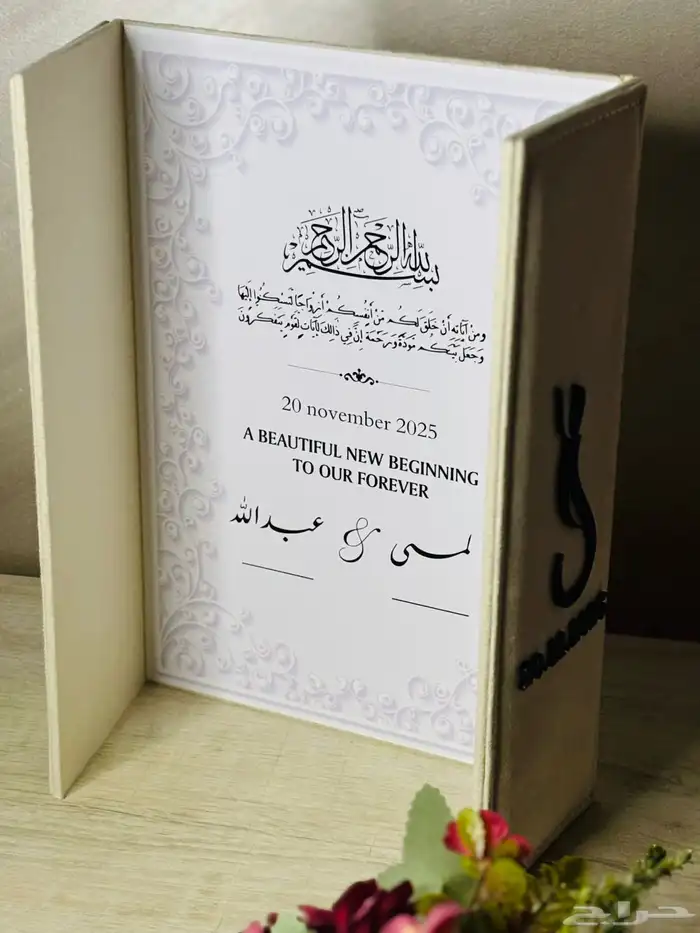 بسم الله الرحمن الرحيم
ومن آياته أن خلق لكم من أنفسكم أزواجا لتسكنوا إليها
وجعل بينكم مودة ورحمة إن في ذالك لآيات لقوم يتفكرون
20 november 2025
A BEAUTIFUL NEW BEGINNING
TO OUR FOREVER
لمى & عبدالله
حراج